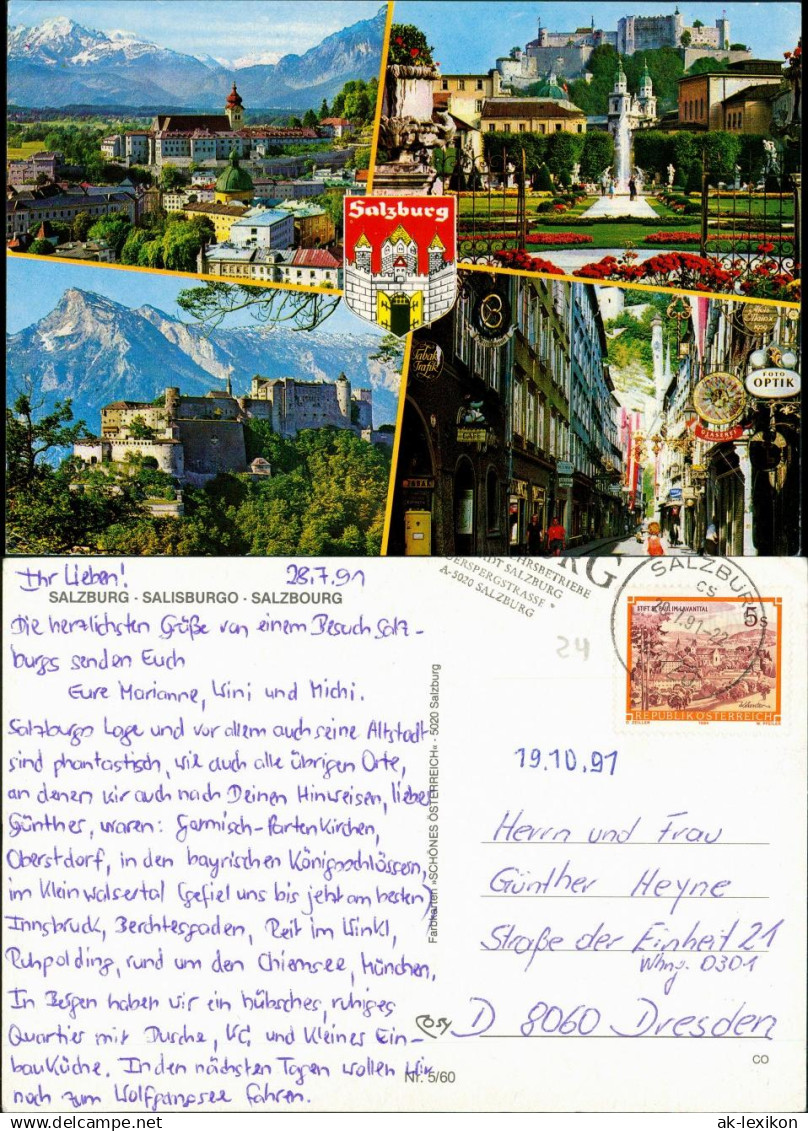 Salzburg
Tabak
Trafik
FOTO
OPTIK
Ihr Lieben! 28.7.91
SALZBURG · SALISBURGO · SALZBOURG
Die herzlichsten Grüße von einem Besuch Salz-
burgs senden Euch
Eure Marianne, Wini und Michi.
Salzburgs Lage und vor allem auch seine Altstadt
sind phantastisch, wie auch alle übrigen Orte,
an denen wir auch nach Deinen Hinweisen, lieber
Günther, waren: Garmisch-Partenkirchen,
Oberstdorf, in den bayrischen Königsschlössern,
im Kleinwalsertal (gefiel uns bis jetzt am besten)
Innsbruck, Berchtesgaden, Reit im Winkl,
Ruhpolding, rund um den Chiemsee, München,
In Bergen haben wir ein hübsches, ruhiges
Quartier mit Dusche, WC und kleines Ein-
bauküche. In den nächsten Tagen wollen wir
noch zum Wolfgangsee fahren.
Farbkarten »SCHÖNES ÖSTERREICH« · 5020 Salzburg
Nr. 5/60
HRSBETRIEBE
DT SALZBURG
ERSPERGSTRASSE
A-5020 SALZBURG
24
SALZBURG
CS
.91-22
STIFT ST. PAUL IM LAVANTTAL
5s
REPUBLIK ÖSTERREICH
19.10.91
Herrn und Frau
Günther Heyne
Straße der Einheit 21
Whng. 0301
D 8060 Dresden
CO
ak-lexikon